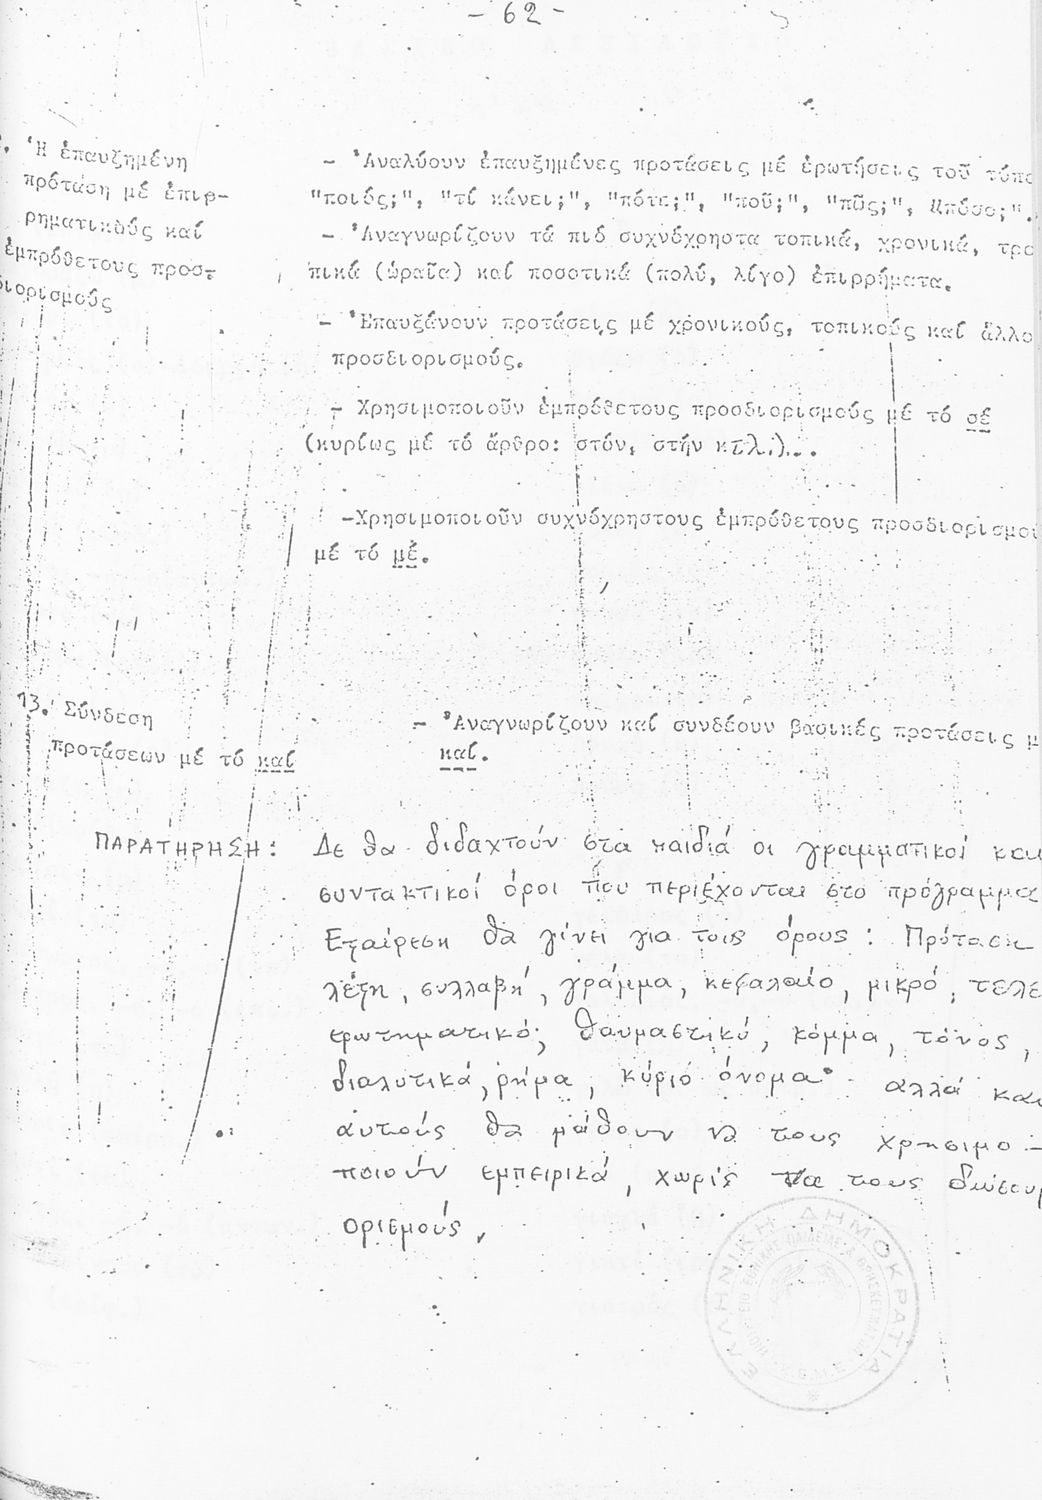 - 62 -
. Ἡ ἐπαυξημένη
πρόταση μέ ἐπιρ-
ρηματικούς καί
ἐμπρόθετους προσ-
διορισμούς
- Ἀναλύουν ἐπαυξημένες προτάσεις μέ ἐρωτήσεις τοῦ τύπο
"ποιός;", "τί κάνει;", "πότε;", "ποῦ;", "πῶς;", "πόσο;".
- Ἀναγνωρίζουν τά πιό συχνόχρηστα τοπικά, χρονικά, τρο
πικά (ὡραῖα) καί ποσοτικά (πολύ, λίγο) ἐπιρρήματα.
- Ἐπαυξάνουν προτάσεις μέ χρονικούς, τοπικούς καί ἄλλο
προσδιορισμούς.
- Χρησιμοποιοῦν ἐμπρόθετους προσδιορισμούς μέ τό σέ
(κυρίως μέ τό ἄρθρο: στόν, στήν κτλ.)...
-Χρησιμοποιοῦν συχνόχρηστους ἐμπρόθετους προσδιορισμού
μέ τό μέ.
13. Σύνδεση
προτάσεων μέ τό καί
- Ἀναγνωρίζουν καί συνδέουν βασικές προτάσεις μ
καί.
ΠΑΡΑΤΗΡΗΣΗ: Δε θα διδαχτούν στα παιδιά οι γραμματικοί και
συντακτικοί όροι που περιέχονται στο πρόγραμμα
Εξαίρεση θα γίνει για τους όρους: Πρόταση
λέξη, συλλαβή, γράμμα, κεφαλαίο, μικρό, τελε
ερωτηματικό, θαυμαστικό, κόμμα, τόνος,
διαλυτικά, ρήμα, κύριο όνομα· αλλά και
αυτούς θα μάθουν να τους χρησιμο-
ποιούν εμπειρικά, χωρίς να τους δώσου
ορισμούς.
ΕΛΛΗΝΙΚΗ ΔΗΜΟΚΡΑΤΙΑ
ΥΠΟΥΡΓΕΙΟ ΕΘΝΙΚΗΣ ΠΑΙΔΕΙΑΣ & ΘΡΗΣΚΕΥΜΑΤΩΝ